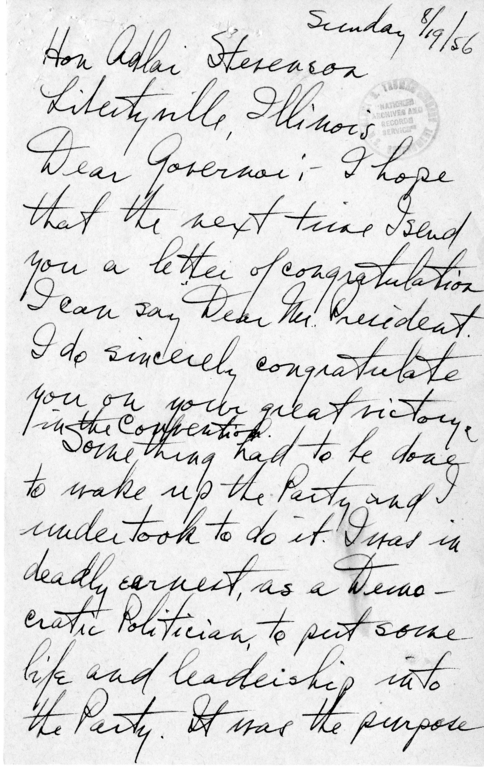 Sunday 8/19/56
Hon Adlai Stevenson
Libertyville, Illinois
Dear Governor:- I hope
that the next time I send
you a letter of congratulation
I can say "Dear Mr. President.
I do sincerely congratulate
you on your great victory
in the Convention.
Something had to be done
to wake up the Party and I
undertook to do it. I was in
deadly earnest, as a Demo-
cratic Politician, to put some
life and leadership into
the Party. It was the purpose
NATIONAL
ARCHIVES AND
RECORDS
SERVICE